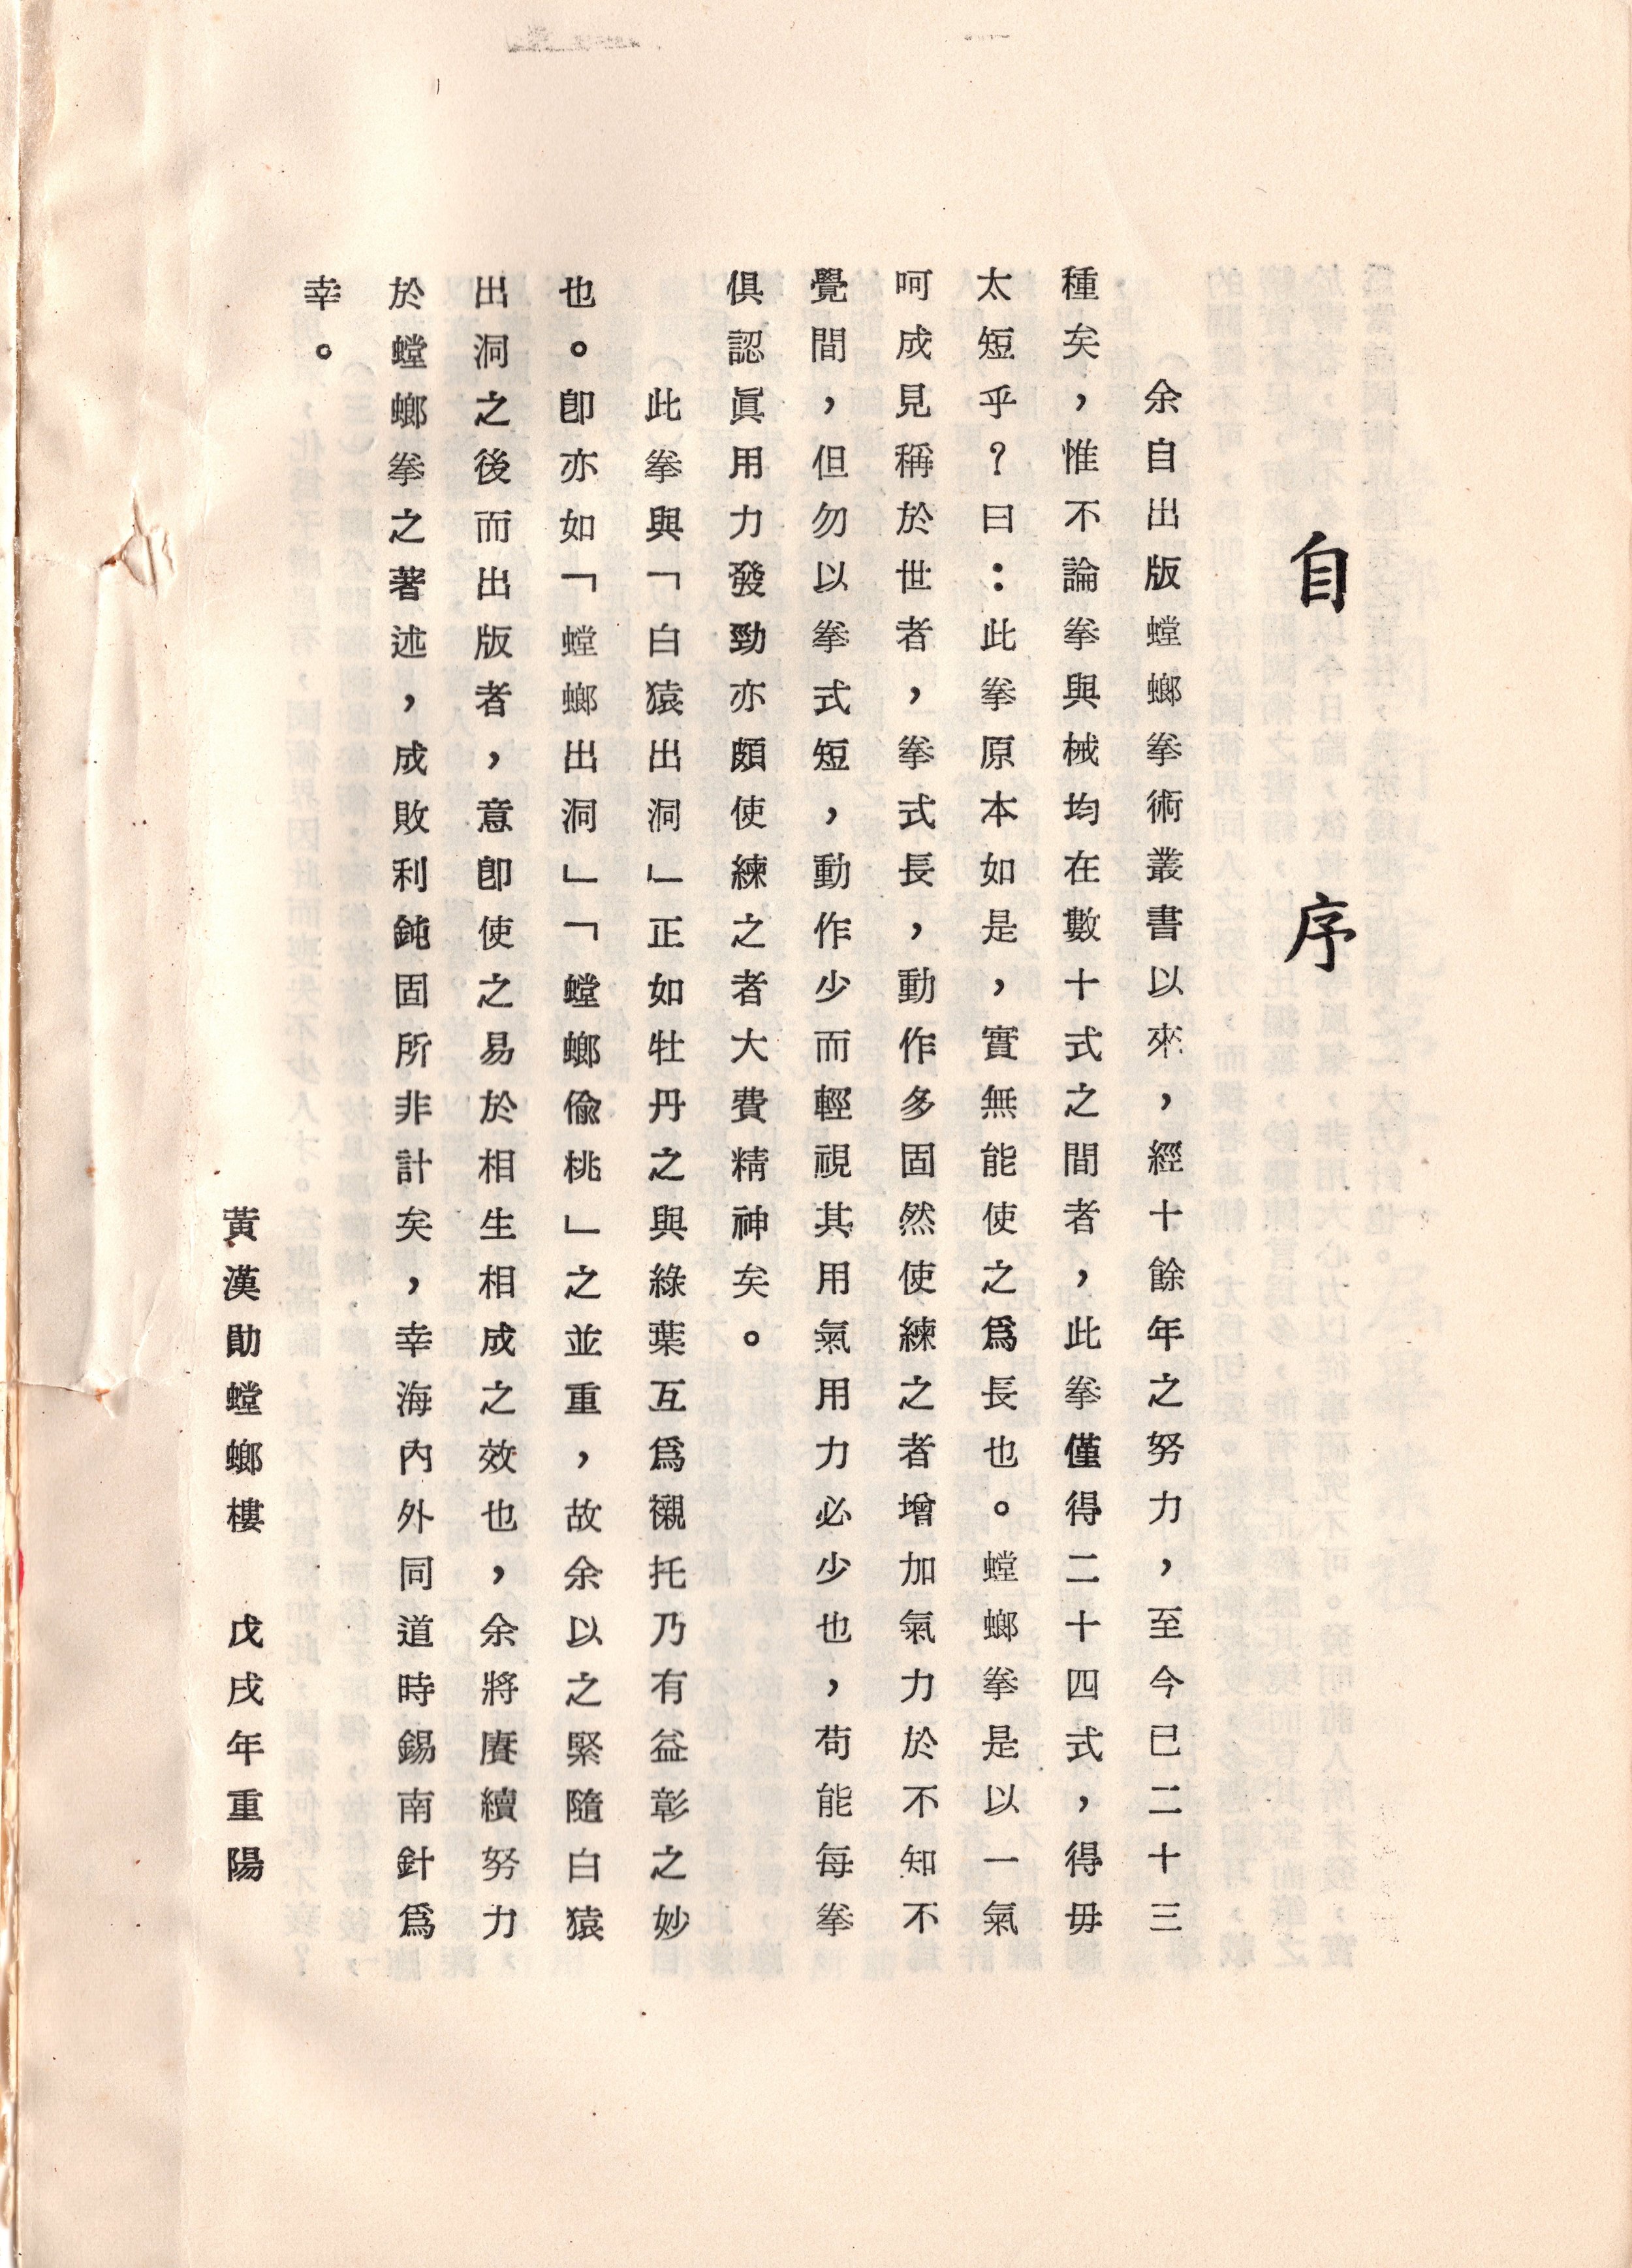 自序
余自出版螳螂拳術叢書以來，經十餘年之努力，至今已二十三
種矣，惟不論拳與械均在數十式之間者，此拳僅得二十四式，得毋
太短乎？曰：此拳原本如是，實無能使之爲長也。螳螂拳是以一氣
呵成見稱於世者，拳式長，動作多固然使練之者增加氣力於不知不
覺間，但勿以拳式短，動作少而輕視其用氣用力必少也，苟能每拳
俱認眞用力發勁亦頗使練之者大費精神矣。
此拳與「白猿出洞」正如牡丹之與綠葉互爲襯托乃有益彰之妙
也。卽亦如「螳螂出洞」「螳螂偷桃」之並重，故余以之緊隨白猿
出洞之後而出版者，意卽使之易於相生相成之效也，余將賡續努力
於螳螂拳之著述，成敗利鈍固所非計矣，幸海內外同道時錫南針爲
幸。
黃漢勛螳螂樓　戊戌年重陽